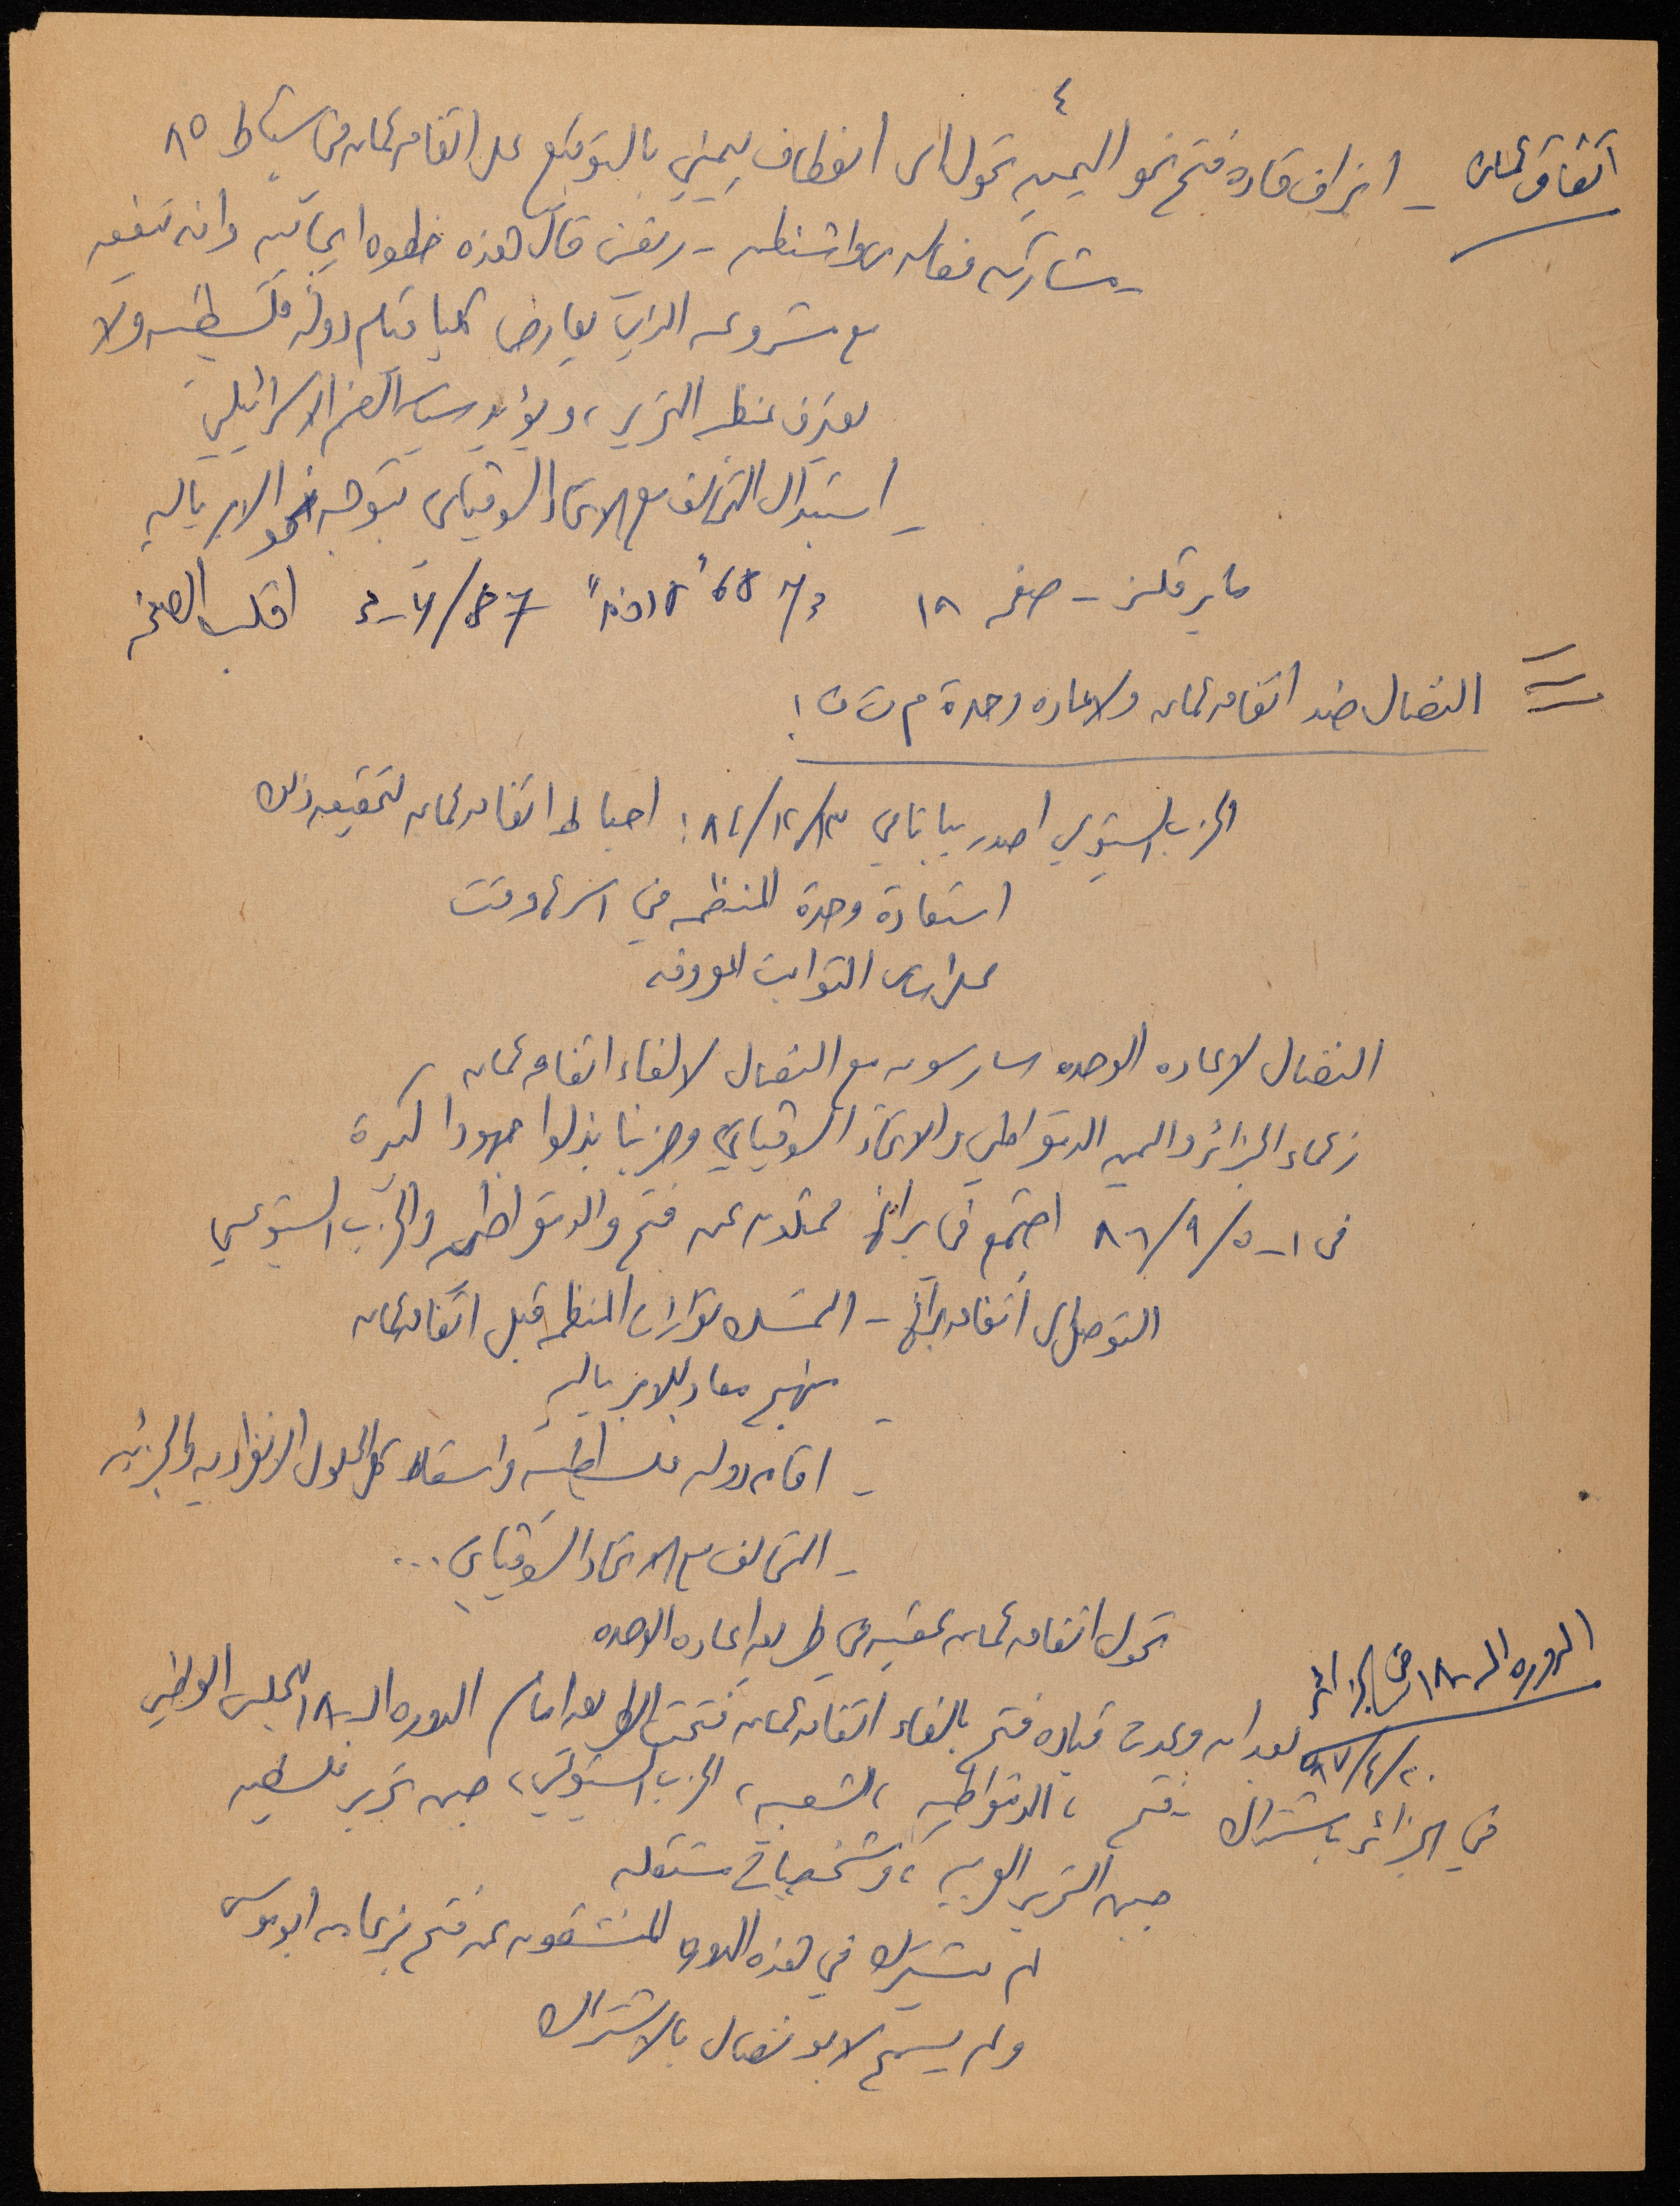 ٤
اتفاق عمان - انحراف قادة فتح نحو اليمين تحول الى انعطاف يميني بالتوقيع على اتفاق عمان في شباط ٨٥
- مشاركه فعاله من واشنطن - ريغن قال هذه خطوه ايجابيه وانه تتفق
مع مشروعه الذي يعارض كليا قيام دولة فلسطينيه ولا
يعترف بمنظمة التحرير، ويؤيد سياسة الضم الاسرائيلي
- استبدال التحالف مع الاتحاد السوفياتي بتوجه نحو الامبرياليه
ماير فلنر - صفحه ١٨ اقلب الصفحه
النضال ضد اتفاق عمان ولاعادة وحدة م ت ف !
الحزب الشيوعي اصدر بيانا في ٨٤/١٢/١٣ : احباط اتفاق عمان لتحقيق ذلك
استعادة وحدة المنظمه في اسرع وقت
على اساس الثوابت المعروفه
النضال لاعاده الوحده سار سويه مع النضال لالغاء اتفاق عمان
زعماء الجزائر واليمن الديمقراطي والاتحاد السوفياتي وحزبنا بذلوا جهودا كبيرة
في ١-٨٦/٩/٥ اجتمع في براغ ممثلون عن فتح والديمقراطيه والحزب الشيوعي
التوصل الى اتفاق براغ - التمسك بقرارات المنظمه قبل اتفاق عمان
- منهج معاد للامبرياليه
- اقامة دوله فلسطينيه واسقاط كل الحلول الانفراديه والجزئيه
- التحالف مع الاتحاد السوفياتي ...
تحول اتفاق عمان عقبه في طريق اعاده الوحده
الدوره الـ ١٨ في الجزائر
٨٧/٤/٢٠
بعد ان وعدت قياده فتح بالغاء اتفاق عمان فتحت الطريق امام الدوره الـ ١٨ للمجلس الوطني
في الجزائر باشتراك فتح، الديمقراطيه، الشعبيه، الحزب الشيوعي، جبهة تحرير فلسطين
جبهة التحرير العربيه، وشخصيات مستقله
لم يشترك في هذه الدوره المنشقون عن فتح بزعامة ابو موسى
ولم يسمح لابو نضال بالاشتراك